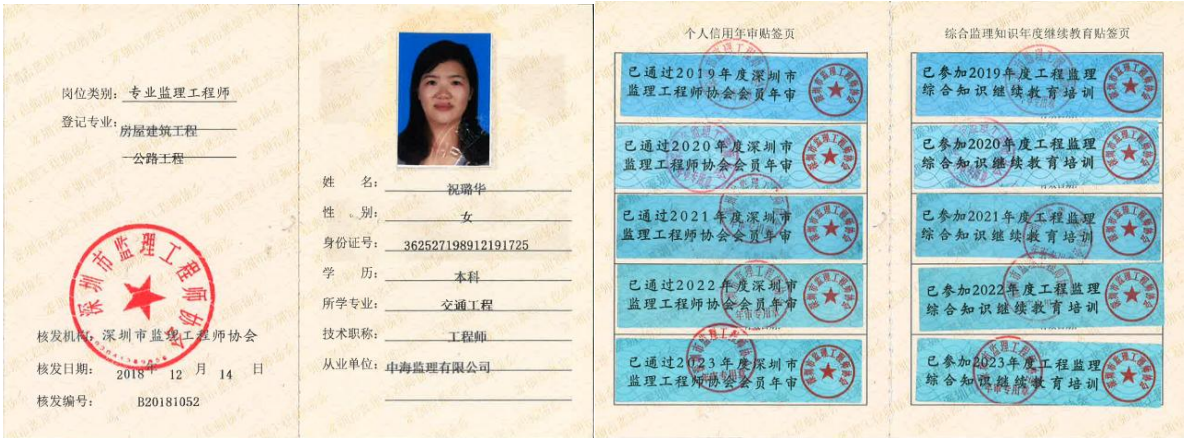 岗位类别：专业监理工程师
登记专业：房屋建筑工程
公路工程
深圳市监理工程师协会
核发机构：深圳市监理工程师协会
核发日期：2018年 12 月 14 日
核发编号：B20181052
姓 名：祝璐华
性 别：女
身份证号：362527198912191725
学 历：本科
所学专业：交通工程
技术职称：工程师
从业单位：中海监理有限公司
个人信用年审贴签页
已通过2019年度深圳市
监理工程师协会会员年审
已通过2020年度深圳市
监理工程师协会会员年审
已通过2021年度深圳市
监理工程师协会会员年审
已通过2022年度深圳市
监理工程师协会会员年审
已通过2023年度深圳市
监理工程师协会会员年审
综合监理知识年度继续教育贴签页
已参加2019年度工程监理
综合知识继续教育培训
已参加2020年度工程监理
综合知识继续教育培训
已参加2021年度工程监理
综合知识继续教育培训
已参加2022年度工程监理
综合知识继续教育培训
已参加2023年度工程监理
综合知识继续教育培训